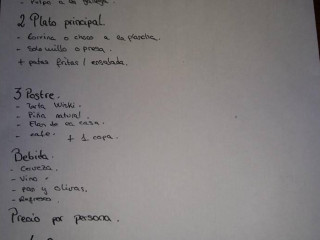 - Pulpo a la gallega
2 Plato principal
- Corvina o choco a la plancha.
- Solomillo o presa.
+ patas fritas / ensalada.
3 Postre.
- Tarta Wiski.
- Piña natural.
- Flan de la casa.
- café.
+ 1 copa.
Bebida.
- Cerveza.
- Vino
- Pan y olivas.
- Refresco
Precio por persona.